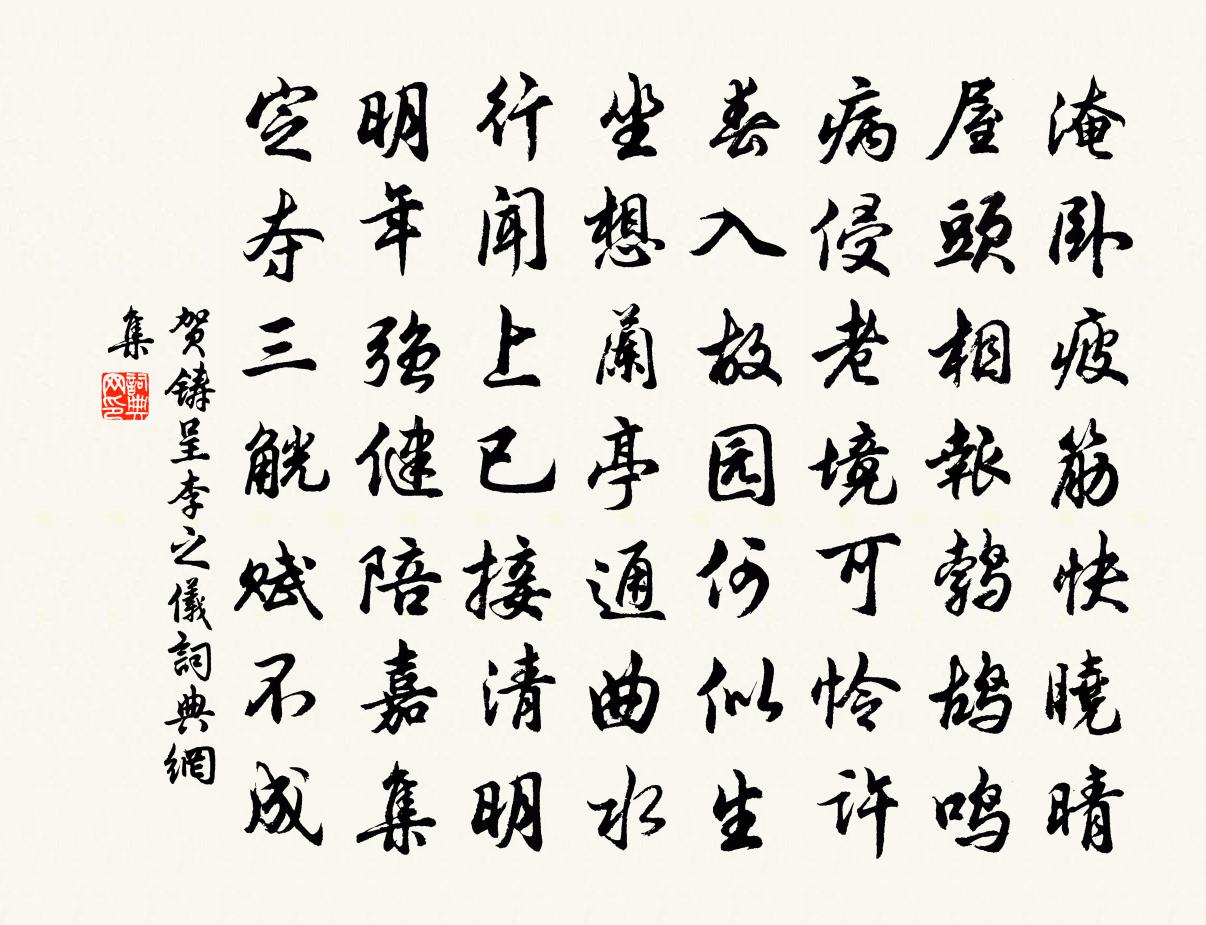 淹卧疲筋快曉晴
屋頭相報鵓鴣鳴
病侵老境可怜許
春入故园何似生
坐想蘭亭通曲水
行聞上巳接清明
明年强健陪嘉集
定夺三觥赋不成
贺鑄呈李之儀詞典網
集
詞典
网印